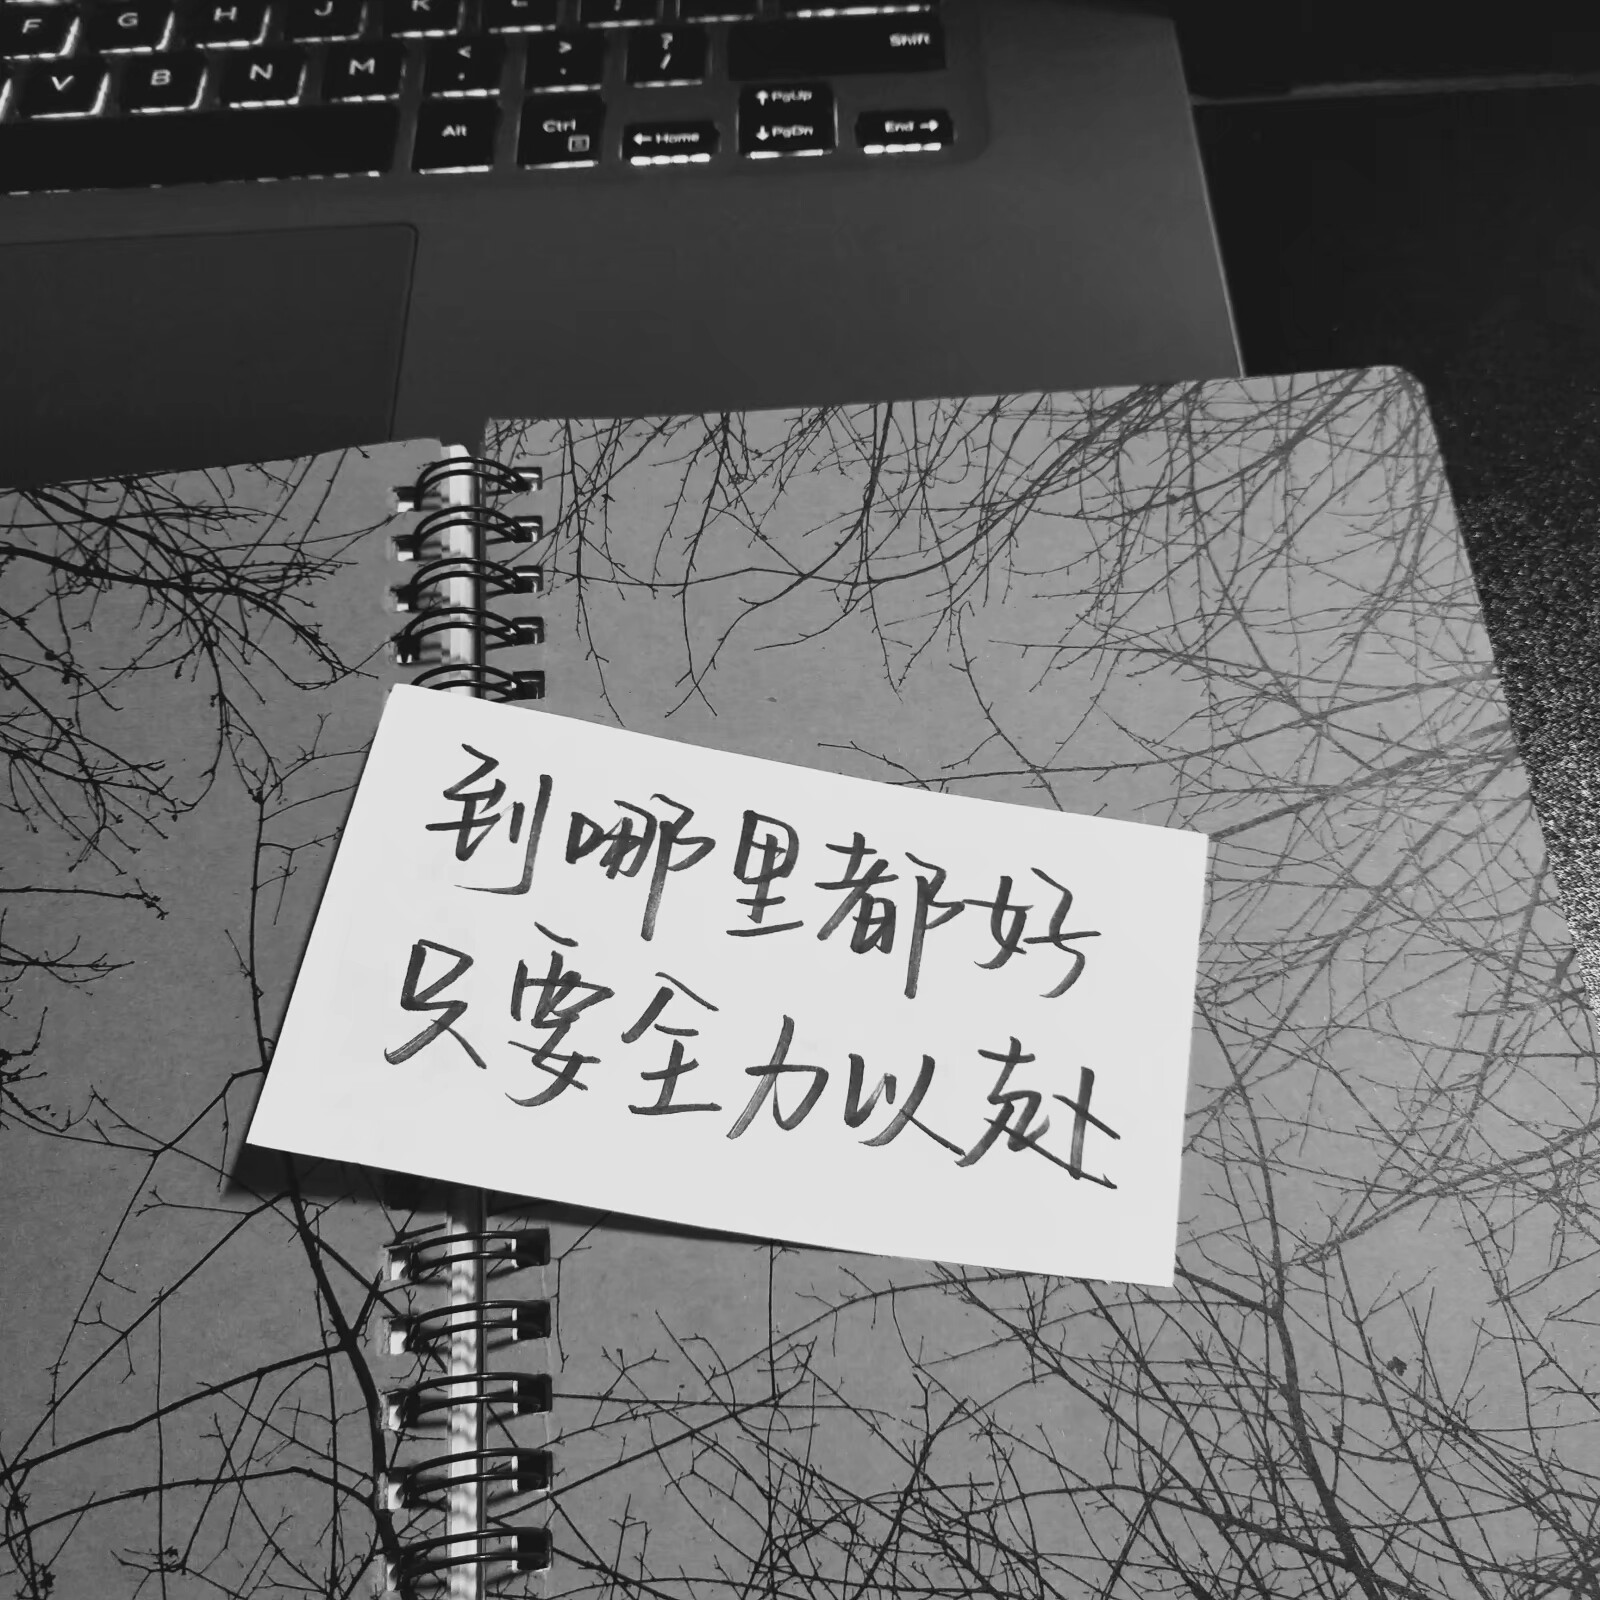 F G H J K L
V B N M < , > . ? / Shift
Alt Ctrl ← Home ↑ PgUp ↓ PgDn End →
到哪里都好
只要全力以赴